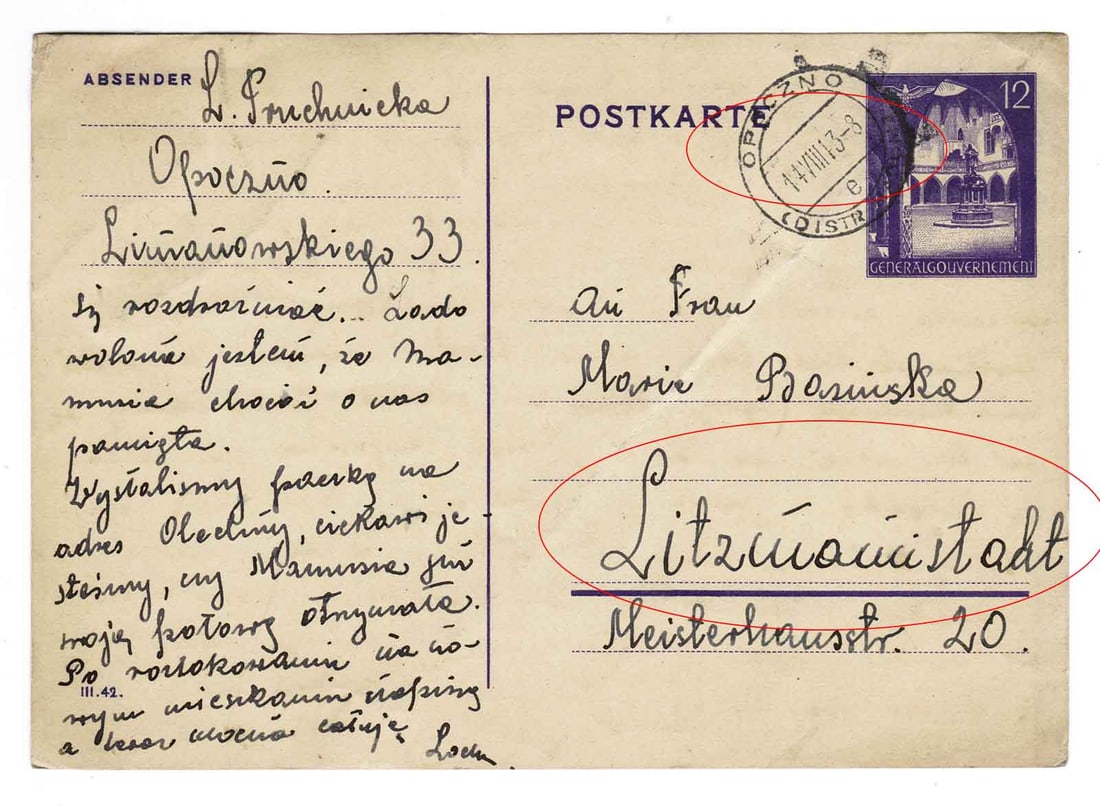 ABSENDER
L. Pruchnicka
Opoczno.
Limanowskiego 33.
ją rozdrażniać... Zado
wolona jestem, że Ma-
musia chociaż o nas
pamięta.
Wysłaliśmy paczkę na
adres Olechny, ciekawi je-
steśmy, czy Mamusia już
swoją połowę otrzymała.
Po rozlokowaniu na no-
wym mieszkaniu napiszę
a teraz mocno całuję
III.42.
POSTKARTE
OPOCZNO
14 VIII 13-8
e
(DISTR
12
GENERALGOUVERNEMENT
An Frau
Marie Basinska
Litzmannstadt
Meisterhausstr. 20.